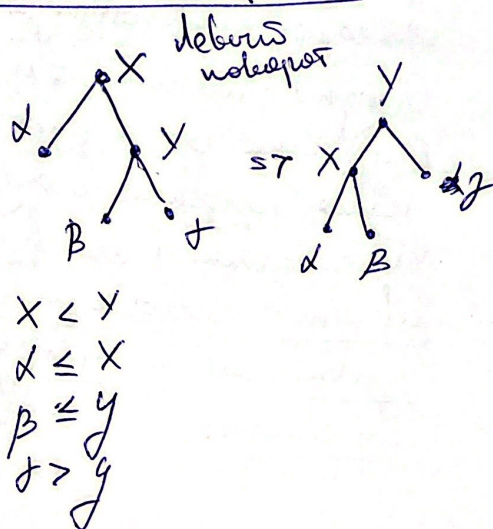 левый
поворот
X
α
Y
β
γ
=>
Y
X
γ
α
β
X < Y
α ≤ X
β ≤ y
γ > y